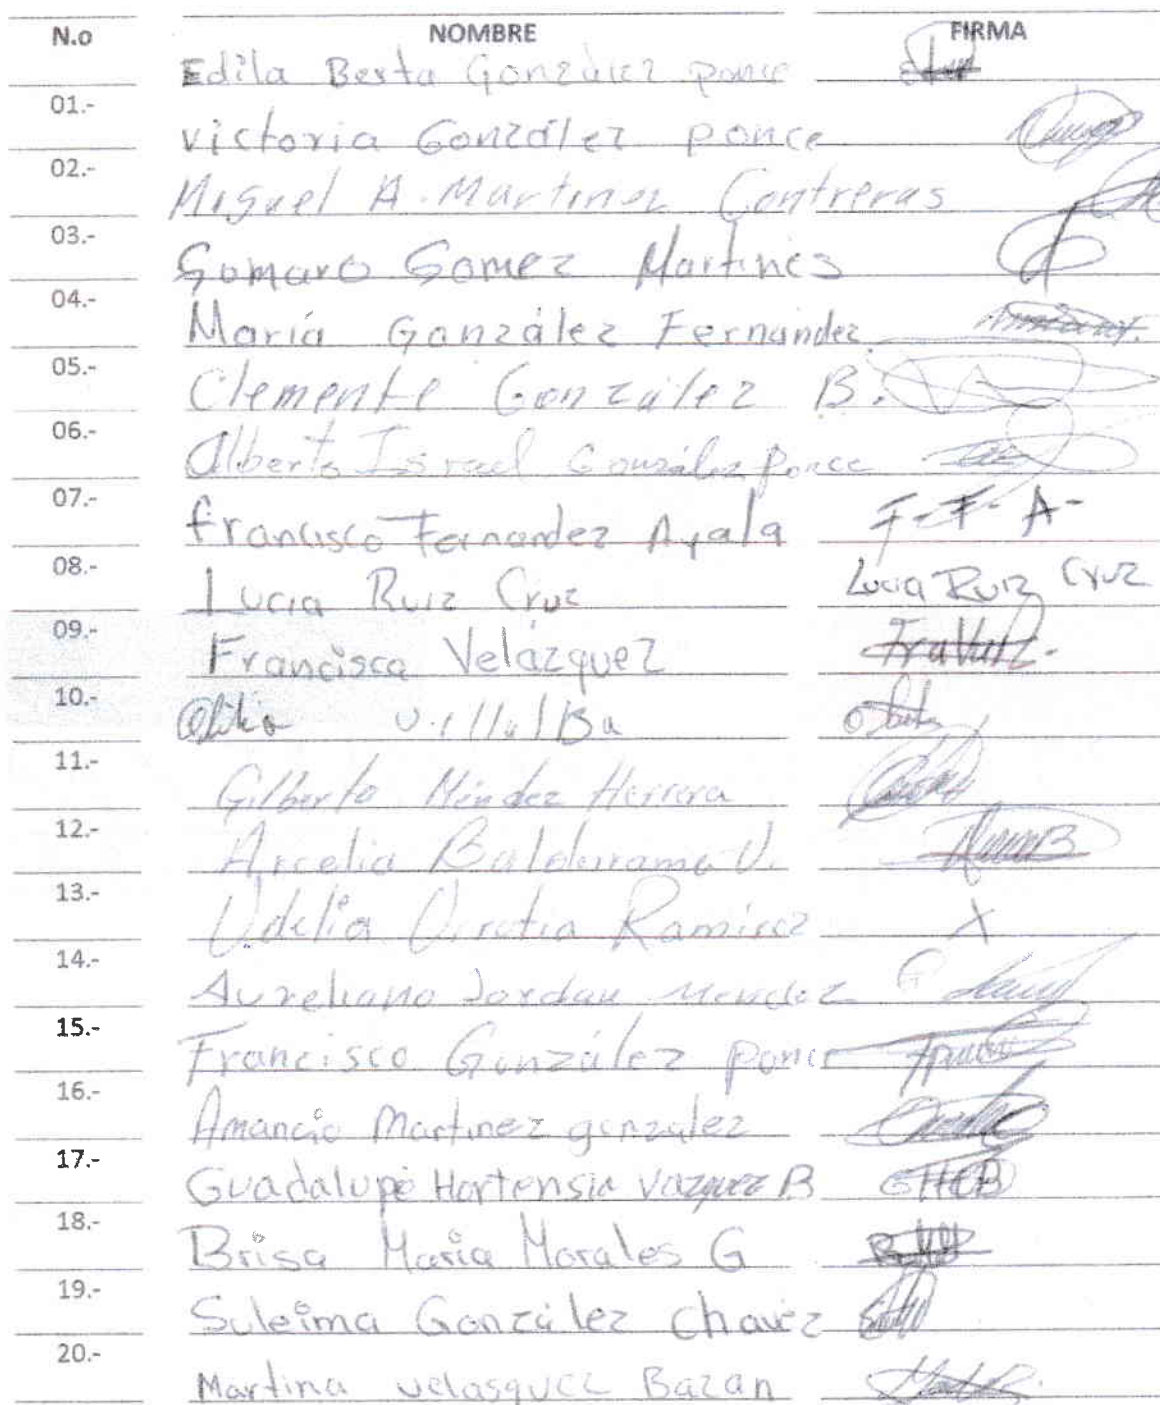 N.o NOMBRE FIRMA
Edila Berta González ponce
01.-
victoria González ponce
02.-
Miguel A. Martinez Contreras
03.-
Gomaro Gomez Martines
04.-
María González Fernández
05.-
Clemente González B.
06.-
Alberto Israel González Ponce
07.-
francisco Fernandez Ayala F-F-A-
08.-
Lucia Ruiz Cruz Lucia Ruiz Cruz
09.-
Francisca Velázquez
10.-
villalBa
11.-
Gilberto Méndez Herrera
12.-
Arcelia Balderrama V.
13.-
Udelia Urrutia Ramirez X
14.-
Aureliano Jordan Mendez
15.-
Francisco González ponce
16.-
Amancio Martinez gonzalez
17.-
Guadalupe Hortensia Vazquez B
18.-
Brisa Maria Morales G
19.-
Suleima González chavéz
20.-
Martina velasquez Bazan